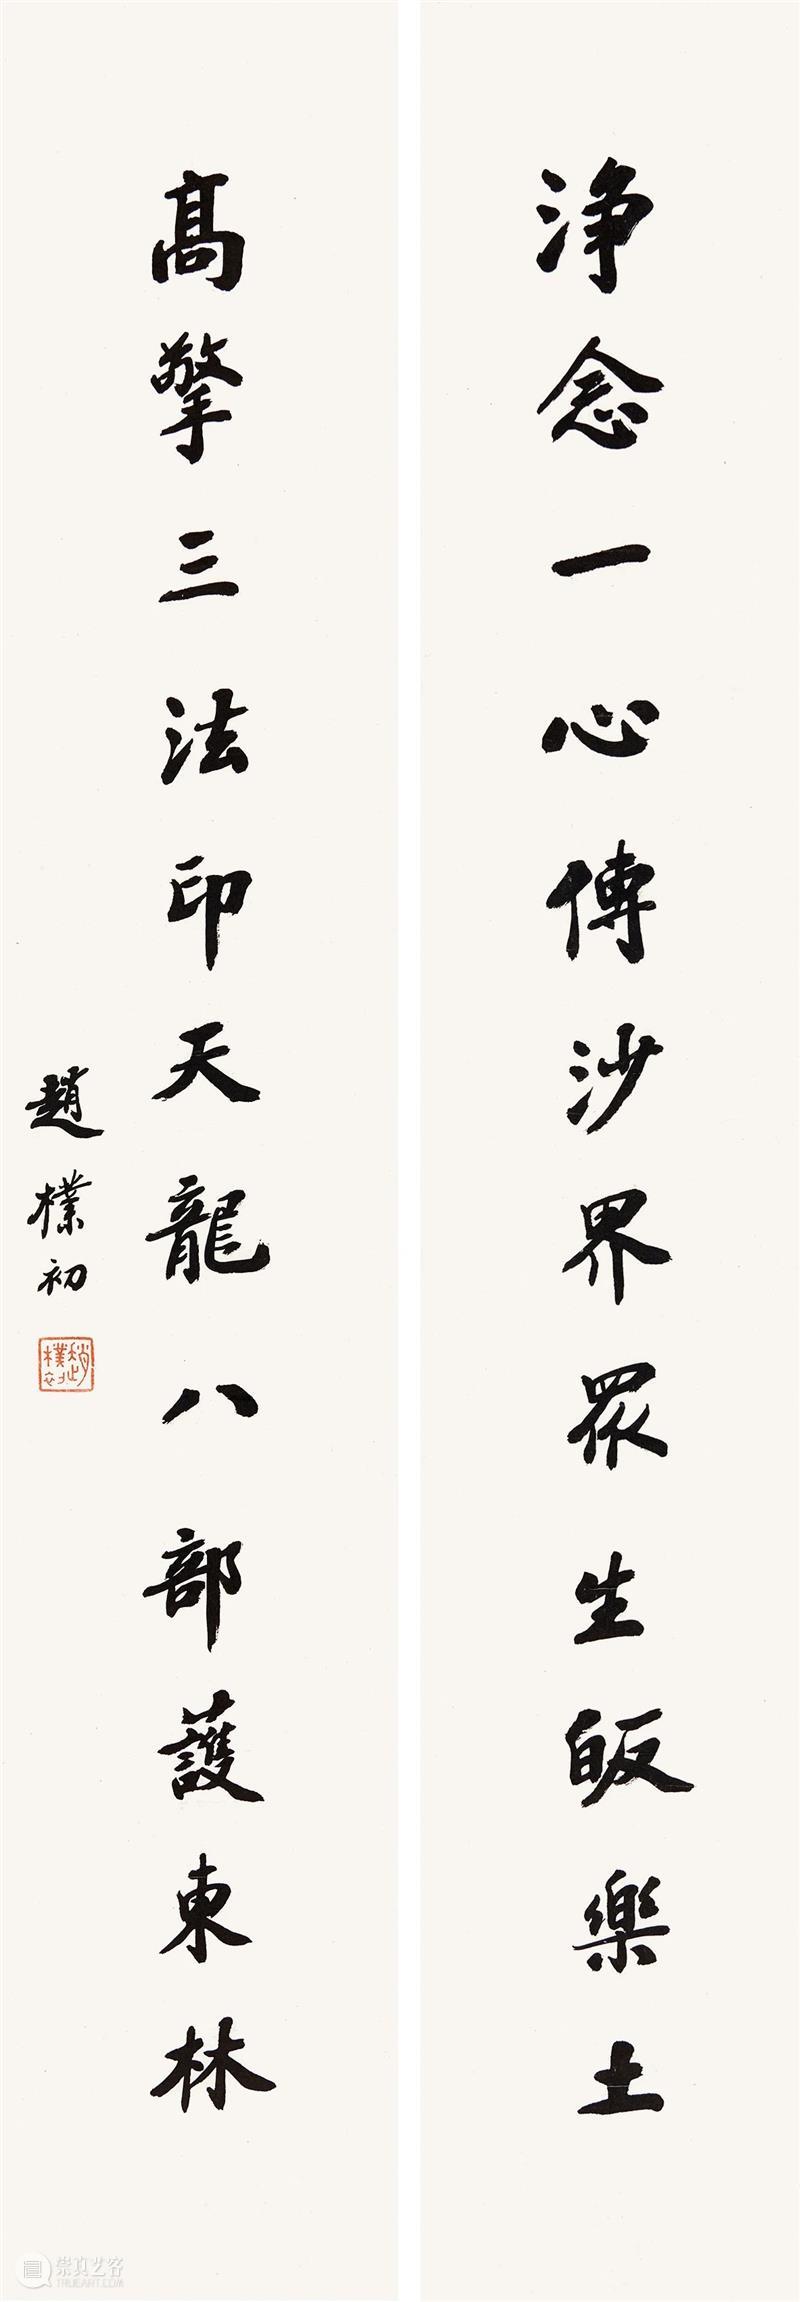 淨念一心傳沙界眾生皈樂土
高擎三法印天龍八部護東林
趙樸初
趙樸初
崇真艺客
TRUEART.COM